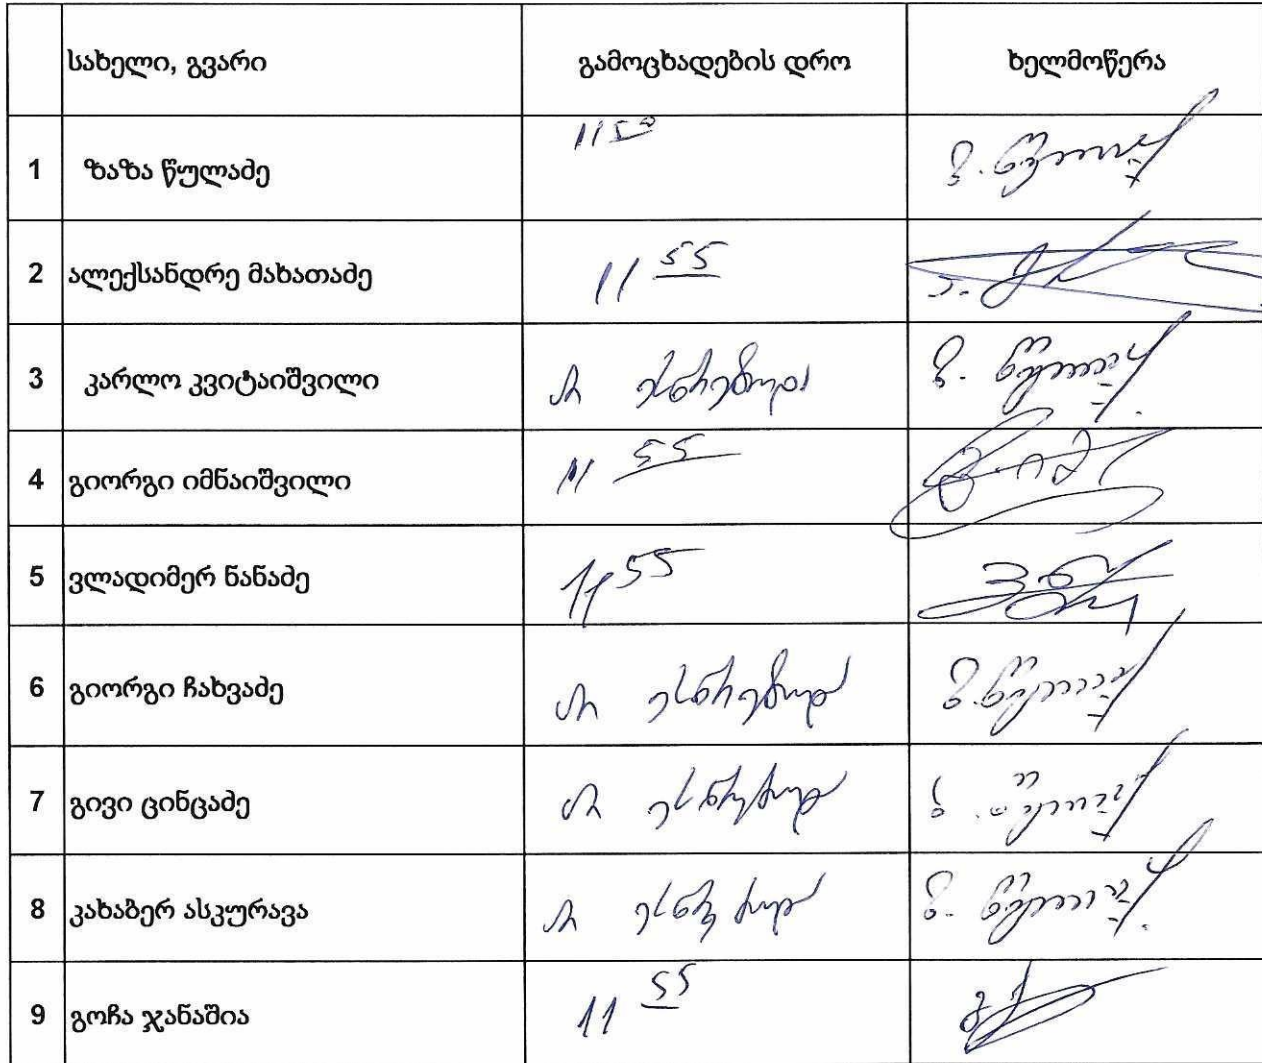 სახელი, გვარი გამოცხადების დრო ხელმოწერა
1 ზაზა წულაძე 11 50 ზ. წულაძე
2 ალექსანდრე მახათაძე 11 55
3 კარლო კვიტაიშვილი არ ესწრებოდა ზ. წულაძე
4 გიორგი იმნაიშვილი 11 55
5 ვლადიმერ ნანაძე 11 55
6 გიორგი ჩახვაძე არ ესწრებოდა ზ. წულაძე
7 გივი ცინცაძე არ ესწრებოდა ზ. წულაძე
8 კახაბერ ასკურავა არ ესწრებოდა ზ. წულაძე
9 გოჩა ჯანაშია 11 55